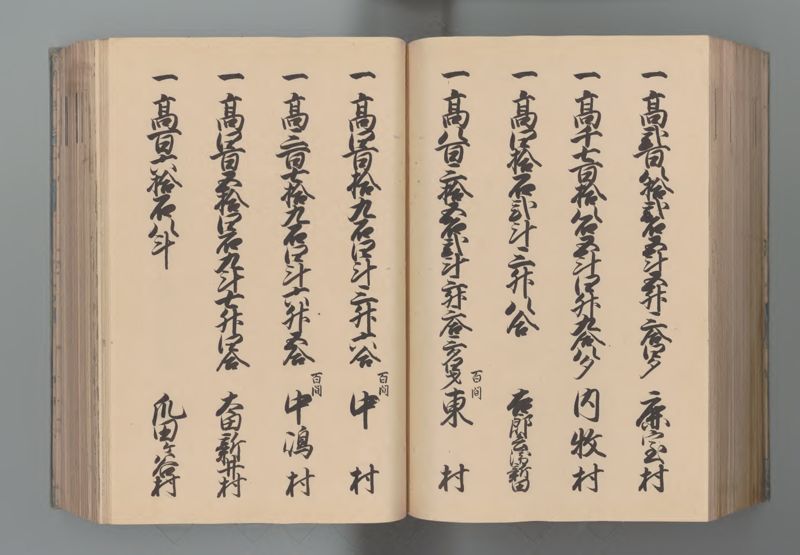 一 高弐百八拾弐石五斗五升三合四夕 三ケ宝村
一 高千七百拾八石五斗四升九合八夕 内牧村
一 高四拾石弐斗三升八合 新田
一 高八百三拾五石弐斗 百间 東村
一 高四百拾九石四斗三升六合 百间 中村
一 高三百七拾九石四斗六升五合 百间 中嶋村
一 高四百五拾四石九斗七升四合 太田新井村
一 高百六拾石八斗 爪田ケ谷村